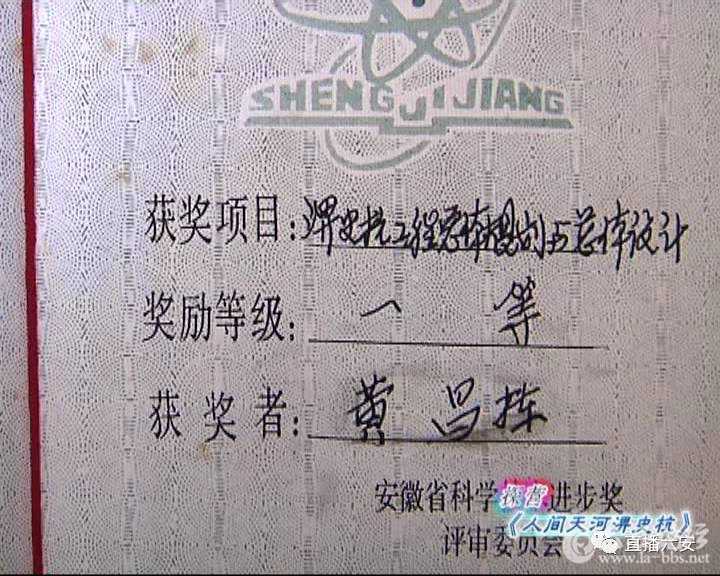 SHENGJIJIANG
获奖项目:淠史杭工程总体规划与总体设计
奖励等级:一等
获奖者:黄昌栋
安徽省科学 进步奖
《人间天河淠史杭》
评审委员会
直播六安
www.la-bbs.net